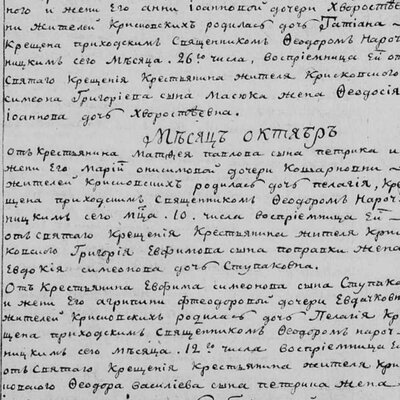 ного и жени Его анни іоанновой дочери Хворостѣв
ни жителей Крисповскихъ родилась дочь Татіана
Крещена приходскимъ Священникомъ Феодоромъ Нароч
ницкимъ сего Мѣсяца. 26го числа, воспріемница Ей от
Святаго Крещенія Крестьянина жителя Крисковского
симеона Григоріева сына Масюка жена Феодосія
іоаннова дочь Хворостѣвна.
Мѣсяцъ октябръ
Отъ Крестьянина Матфея павлова сына петрика и
жени Его Маріи онисимовой дочери
жителей Крисковскихъ родилась дочь пелагія, Кре
щена приходскимъ Священникомъ Феодоромъ Нароч
ницкимъ сего Мца. 10. числа воспріемница Ей
отъ святаго Крещенія Крестьянина жителя Крис
ковского Григорія Евфимова сына поправки Жена
Евдокія симеонова дочь Ступаковна.
Отъ Крестьянина Евфима симеонова сына Ступак
и жени Его агрипини фтеодоровой дочери Евдачковн
жителей Крисковскихъ родилась дочь Пелагія Кр
щена приходскимъ Священникомъ Феодоромъ нароч
ницкимъ сего мѣсяца. 12го числа воспріемница Е
отъ Святаго Крещенія Крестьянина жителя Кри
ковского Феодора василіева сына петрика жена